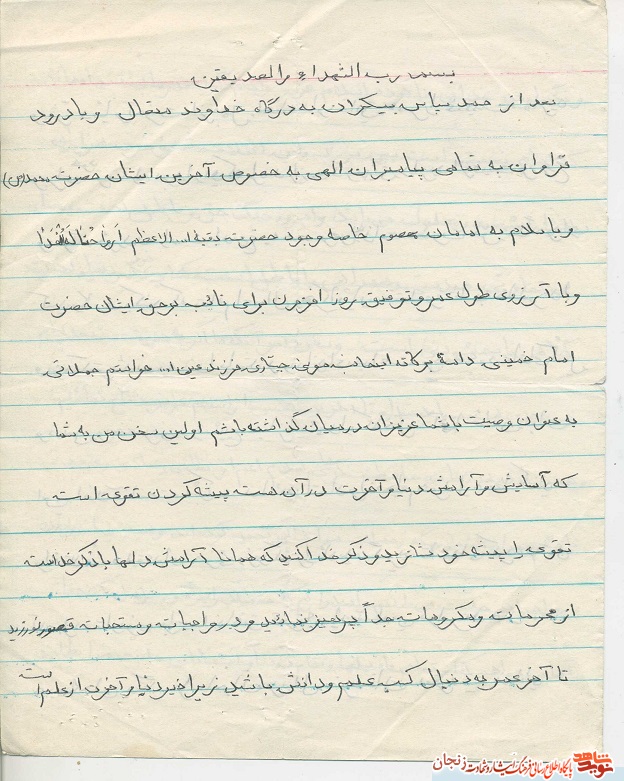 بسمه رب الشهداء والصدیقین
بعد از حمد سپاس بیکران به درگاه خداوند متعال و با درود
فراوان به تمامی پیامبران الهی به خصوص آخرین ایشان حضرت محمد(ص)
و با سلام به امامان معصوم خاصه وجود حضرت بقیة ا... الاعظم ارواحنا له الفدا
و با آرزوی طول عمر و توفیق روز افزون برای نائب برحق ایشان حضرت
امام خمینی دامة برکاته اینجانب جباری فرزند عین ا... خواستم جملاتی
به عنوان وصیت با شما عزیزان در میان گذاشته باشم اولین سخن من به شما
که آسایش و آرامش دنیا و آخرت در آن هست پیشه کردن تقوی است
تقوی را پیشه خود سازید و ذکر خدا کنید که همانا آرامش دلها با ذکر خداست
از محرمات و مکروهات جداً پرهیز نمائید و در واجبات و مستحبات قصور نورزید
تا آخر عمر به دنبال کسب علم و دانش باشید زیرا خیر دنیا و آخرت از علم است
نوید شاهد
پایگاه اطلاع رسانی فرهنگ ایثار و شهادت زنجان